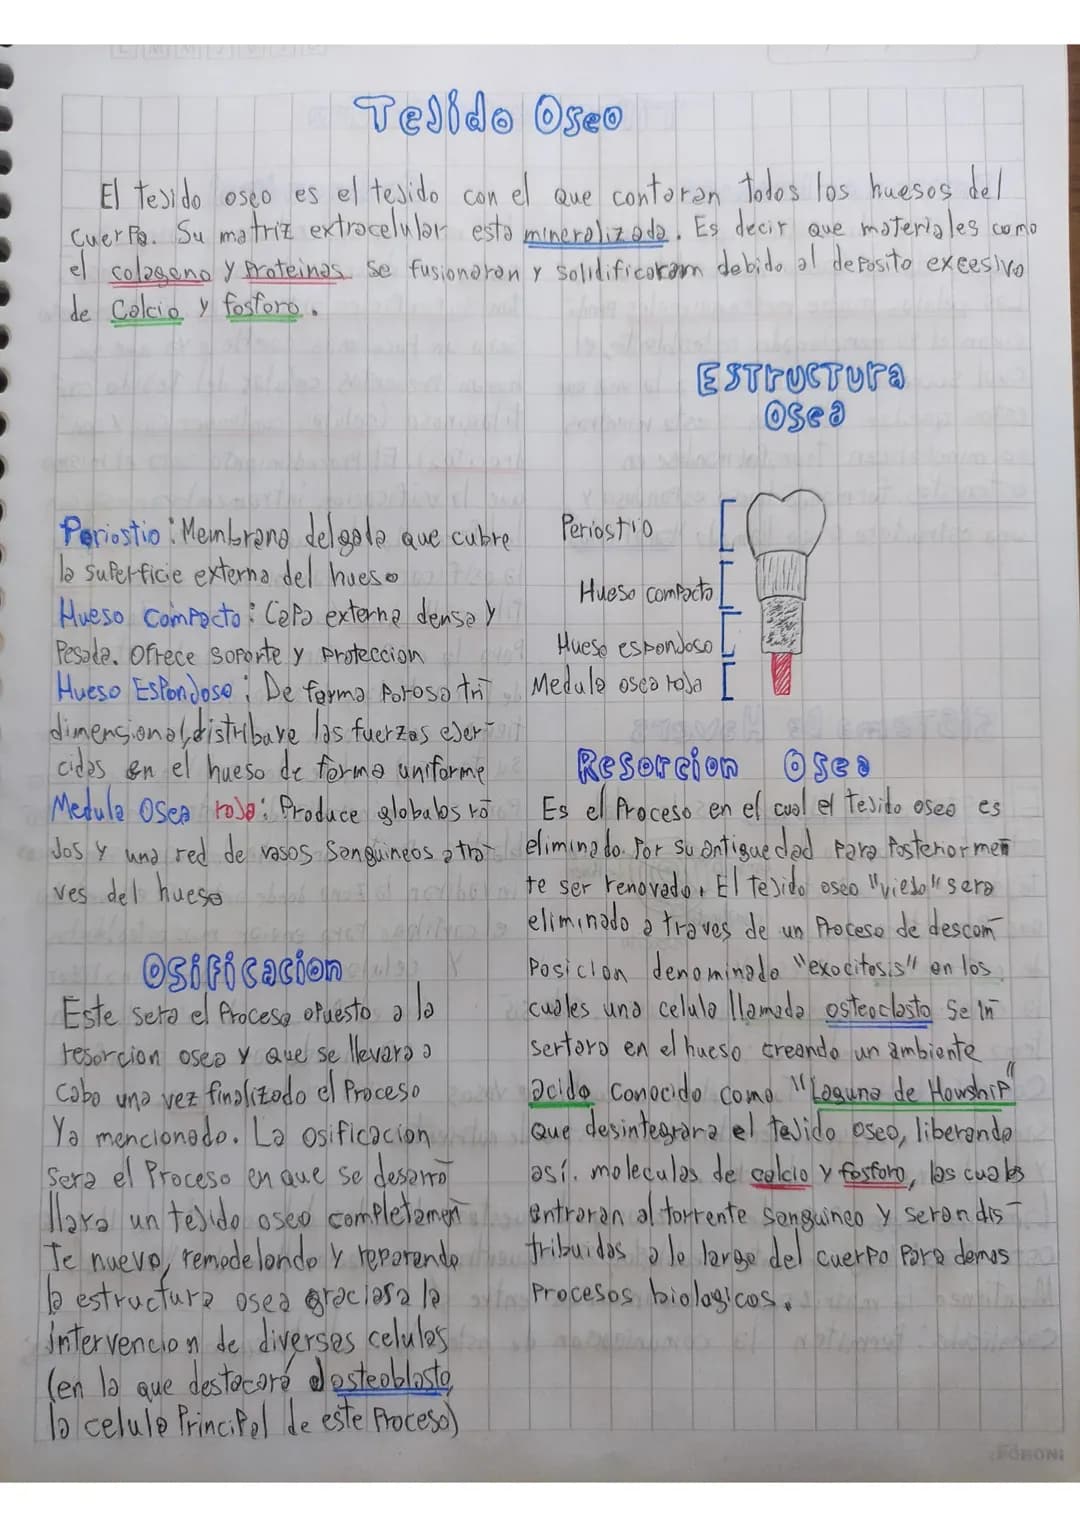 Tejido Oseo
El tejido oseo es el tejido con el que contaran todos los huesos del
cuerpo. Su matriz extracelular esta mineralizada. Es decir que materiales como
el colageno y proteinas se fusionaran y solidificaram debido al deposito excesivo
de Calcio y fosforo.
Periostio: Membrana delgada que cubre
la superficie externa del hueso
Hueso Compacto: Capa externa densa y
Pesada. Ofrece soporte y proteccion
Hueso Esponjoso: De forma porosa tri
dimensional, distribuye las fuerzas ejer-
cidas en el hueso de forma uniforme
Medula Osea roja: Produce globulos ro
jos y una red de vasos sanguineos a tra-
ves del hueso
Osificacion
Este sera el Proceso opuesto a la
resorcion osea y que se llevara a
cabo una vez finalizado el Proceso
Ya mencionado. La osificacion
sera el Proceso en que se desarro
llara un tejido oseo completamen
te nuevo, remodelando y reparando
la estructura osea gracias a la
intervencion de diversas celulas
(en la que destacará el osteoblasto,
la celula Principal de este Proceso)
Estructura
Osea
Periostio
Hueso compacto
Hueso esponjoso
Medula osea roja
Resorcion Osea
Es el Proceso en el cual el tejido oseo es
eliminado. Por su antiguedad para Posteriormen
te ser renovado. El tejido oseo "viejo" sera
eliminado a traves de un Proceso de descom-
posicion denominado "exocitosis" en los
cuales una celula llamada osteoclasto se in
sertara en el hueso creando un ambiente
acido conocido como "Laguna de Howship"
Que desintegrara el tejido oseo, liberando
así. moleculas de calcio y fosforo, las cuales
entraran al torrente sanguineo y seran dis-
tribuidas a lo largo del cuerpo para demas
Procesos biologicos.
FORONI